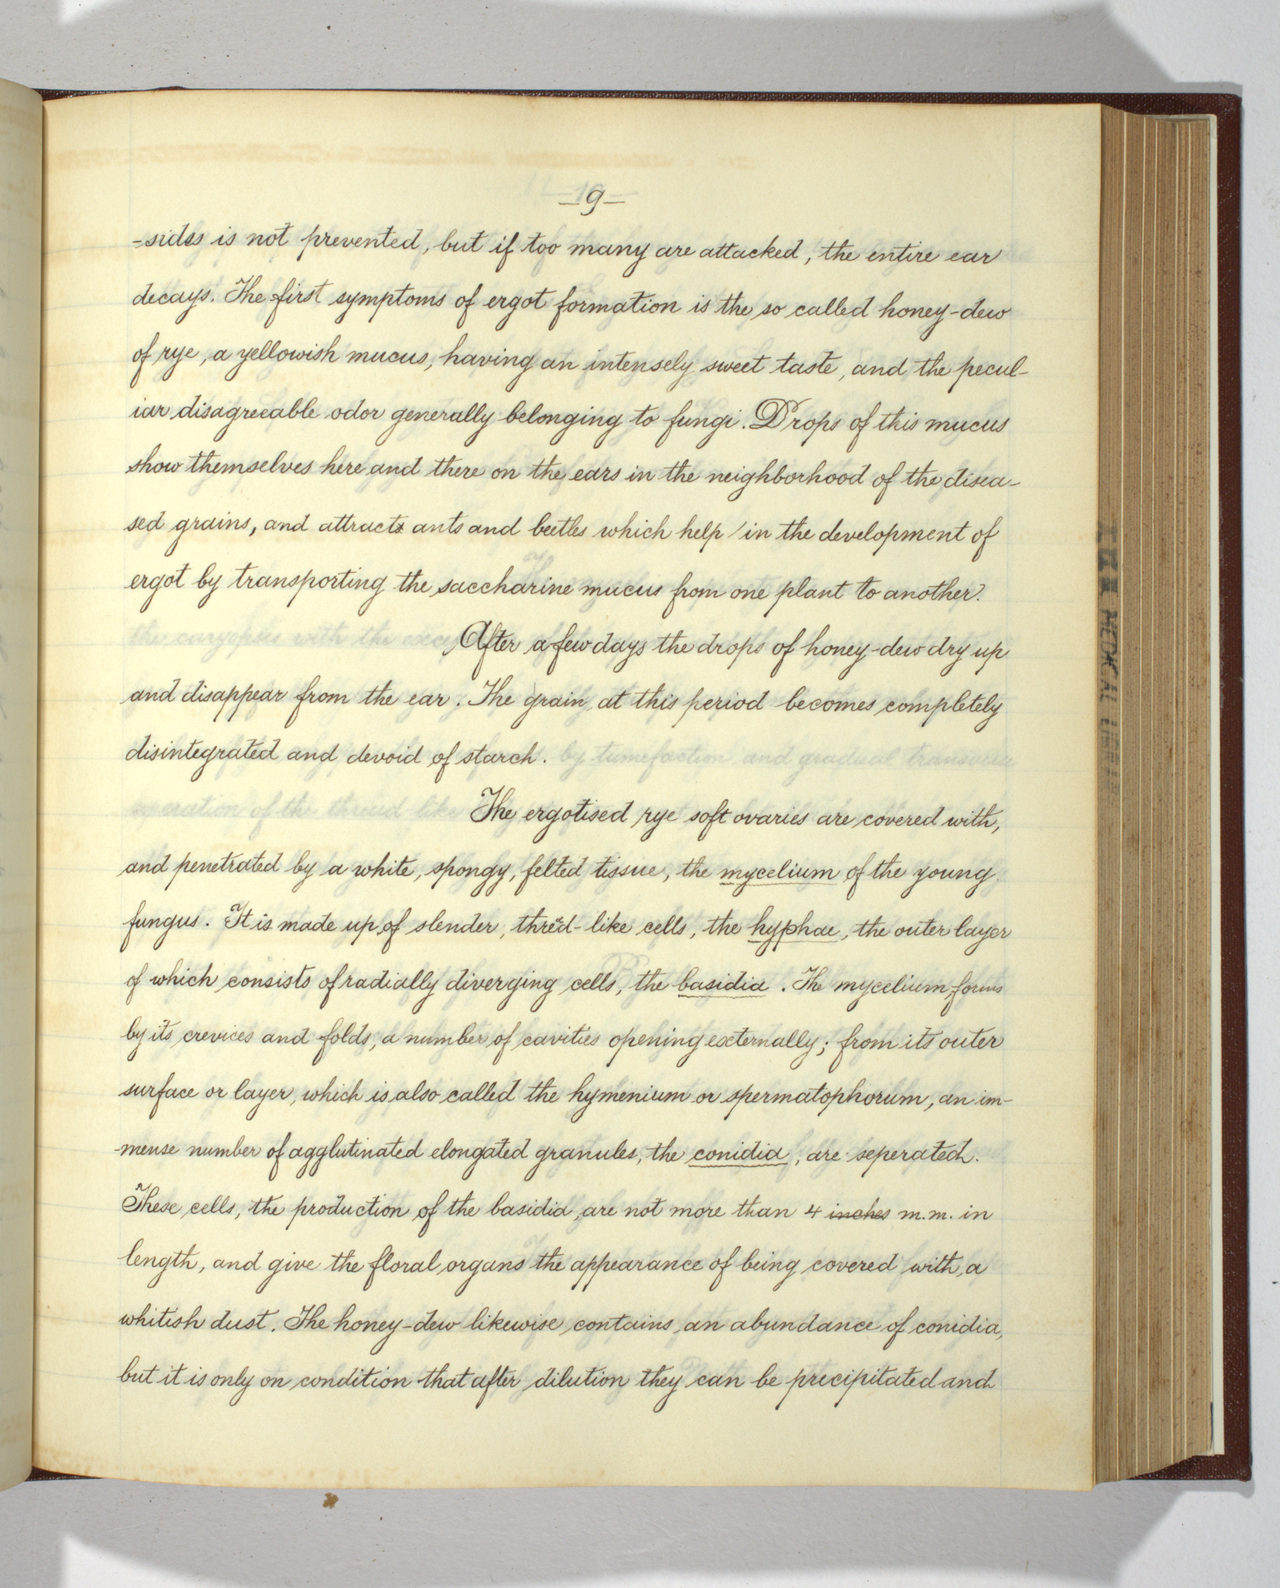 —9—
-sides is not prevented, but if too many are attacked, the entire ear
decays. The first symptoms of ergot formation is the so called honey-dew
of rye, a yellowish mucus, having an intensely sweet taste, and the pecul-
iar disagreeable odor generally belonging to fungi. Drops of this mucus
show themselves here and there on the ears in the neighborhood of the disea-
sed grains, and attracts ants and beetles which help in the development of
ergot by transporting the saccharine mucus from one plant to another.
After a few days the drops of honey-dew dry up
and disappear from the ear. The grain at this period becomes completely
disintegrated and devoid of starch.
The ergotised rye soft ovaries are covered with,
and penetrated by a white, spongy, felted tissue, the mycelium of the young
fungus. It is made up of slender, thred-like cells, the hyphae, the outer layer
of which consists of radially diverging cells, the basidia. The mycelium forms
by its crevices and folds, a number of cavities opening externally; from its outer
surface or layer, which is also called the hymenium or spermatophorum, an im-
-mense number of agglutinated elongated granules, the conidia, are seperated.
These cells, the production of the basidia, are not more than 4 inches m.m. in
length, and give the floral organs the appearance of being covered with a
whitish dust. The honey-dew likewise contains an abundance of conidia,
but it is only on condition that after dilution they can be precipitated and
MEDICAL